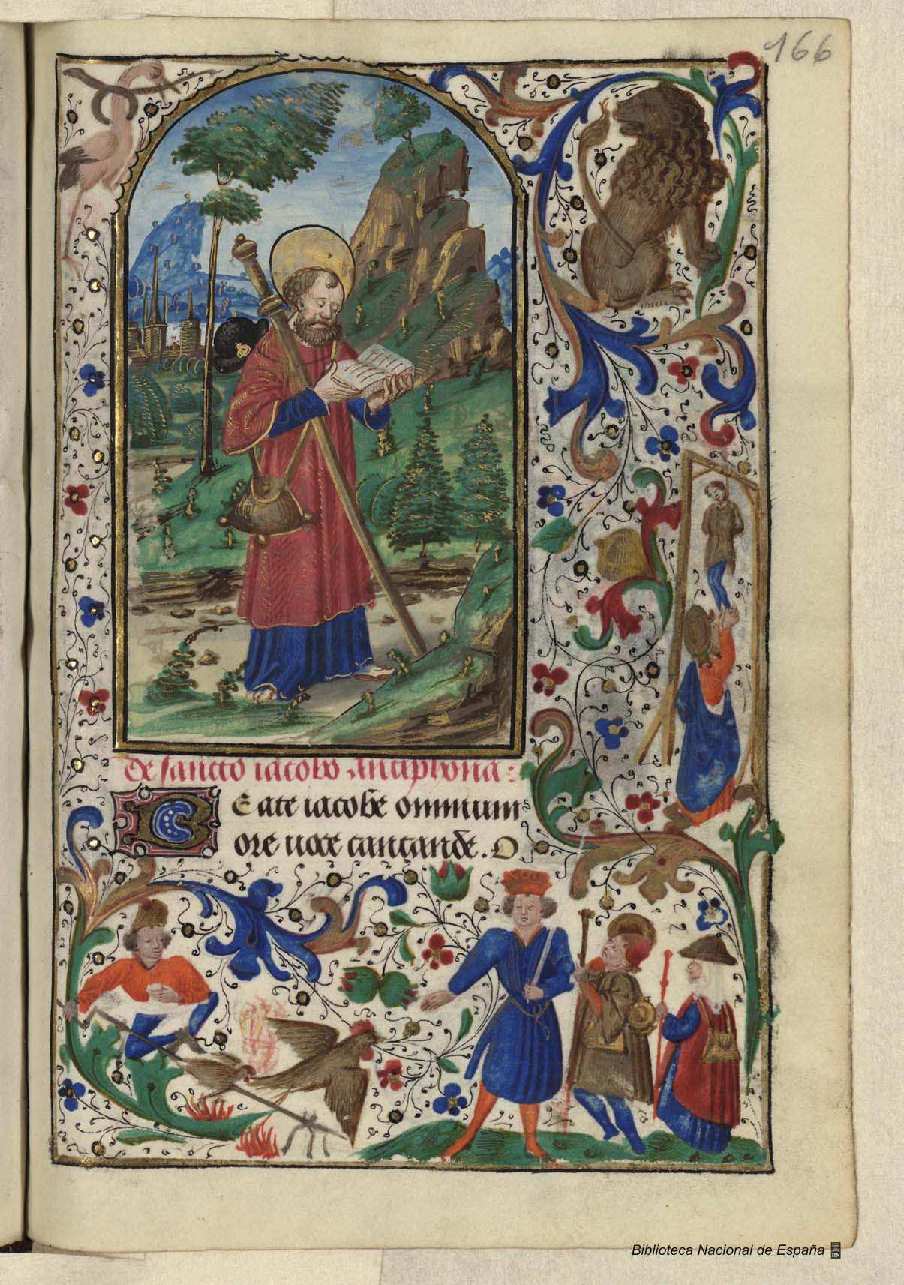 166
De sancto iacobo . Antiphona :
Beate iacobe omnium
ore uoce cantande. O
Biblioteca Nacional de España